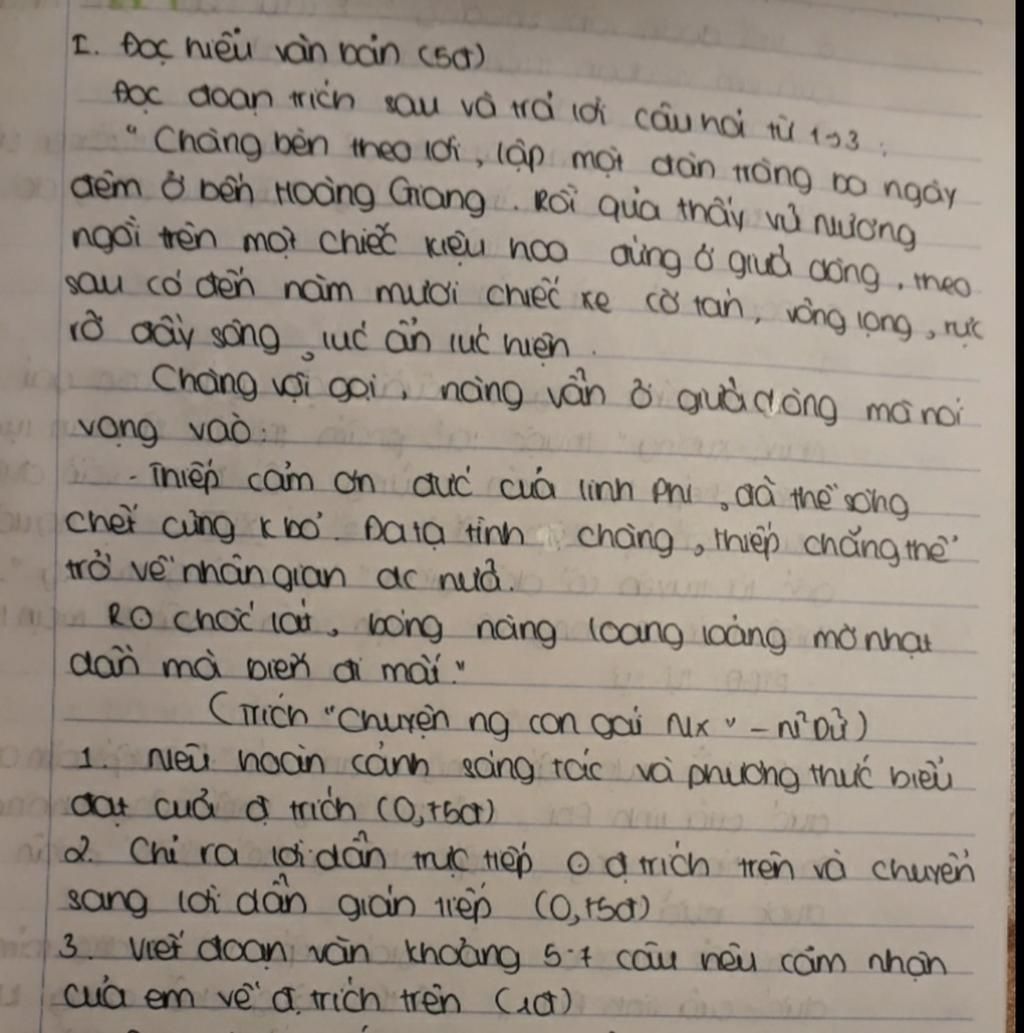 I. Đọc hiểu văn bản (5đ)
Đọc đoạn trích sau và trả lời câu hỏi từ 1→3:
"Chàng bèn theo lời, lập một đàn tràng ba ngày
đêm ở bến Hoàng Giang. Rồi quả thấy Vũ Nương
ngồi trên một chiếc kiệu hoa đứng ở giữa dòng, theo
sau có đến năm mươi chiếc xe cờ tán, võng lọng, rực
rỡ đầy sông, lúc ẩn lúc hiện.
Chàng vội gọi, nàng vẫn ở giữa dòng mà nói
vọng vào:
- Thiếp cảm ơn đức của Linh Phi, đã thề sống
chết cũng k bỏ. Đa tạ tình chàng, thiếp chẳng thể
trở về nhân gian đc nữa.
Rồ chốc lát, bóng nàng loang loáng mờ nhạt
dần mà biến đi mất."
(Trích "Chuyện ng con gái NX" - N² Dữ)
1. Nêu hoàn cảnh sáng tác và phương thức biểu
đạt của đ trích (0,75đ)
2. Chỉ ra lời dẫn trực tiếp ở đ trích trên và chuyển
sang lời dẫn gián tiếp (0,75đ)
3. Viết đoạn văn khoảng 5-7 câu nêu cảm nhận
của em về đ. trích trên (1đ)